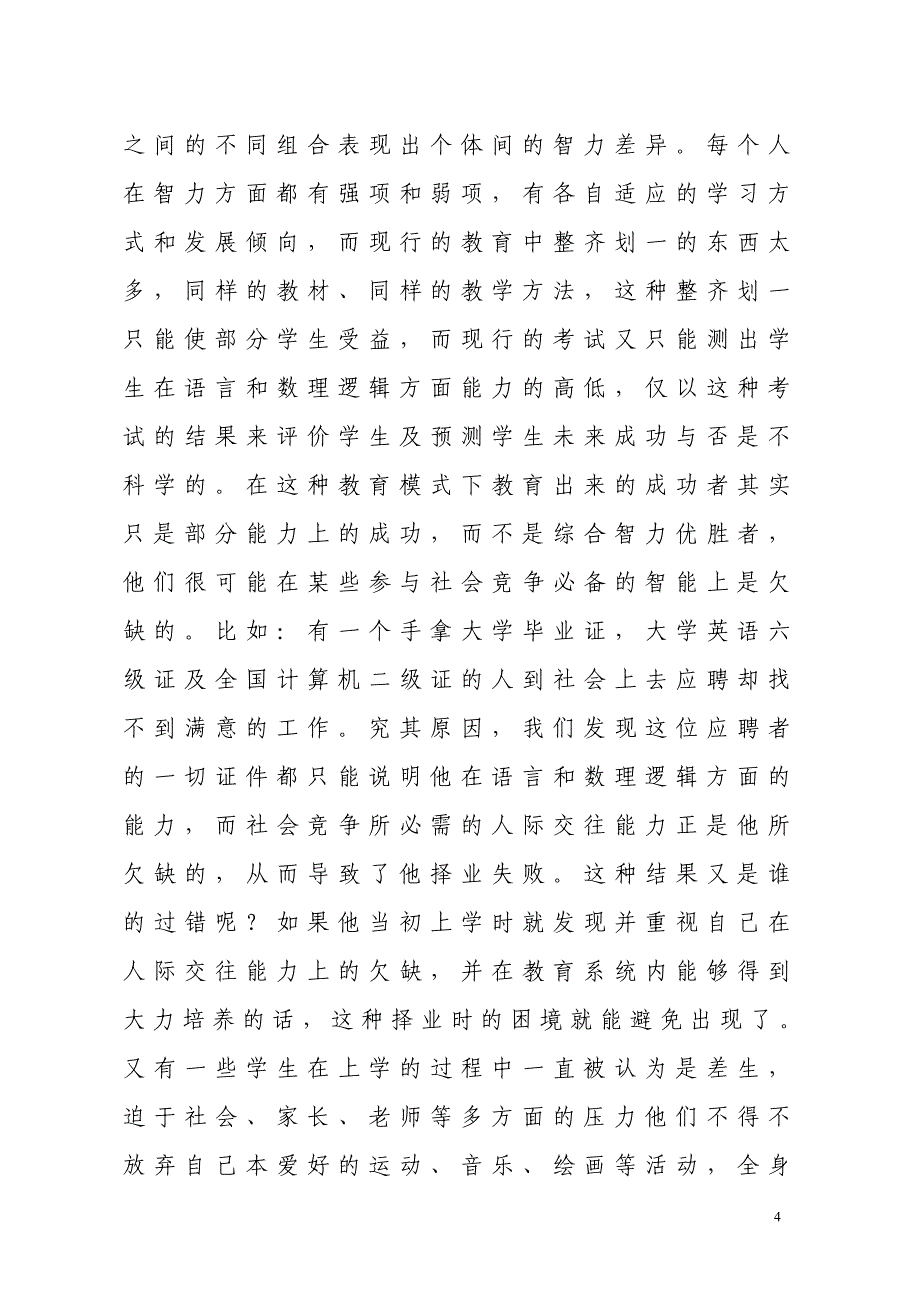 之间的不同组合表现出个体间的智力差异。每个人
在智力方面都有强项和弱项，有各自适应的学习方
式和发展倾向，而现行的教育中整齐划一的东西太
多，同样的教材、同样的教学方法，这种整齐划一
只能使部分学生受益，而现行的考试又只能测出学
生在语言和数理逻辑方面能力的高低，仅以这种考
试的结果来评价学生及预测学生未来成功与否是不
科学的。在这种教育模式下教育出来的成功者其实
只是部分能力上的成功，而不是综合智力优胜者，
他们很可能在某些参与社会竞争必备的智能上是欠
缺的。比如：有一个手拿大学毕业证，大学英语六
级证及全国计算机二级证的人到社会上去应聘却找
不到满意的工作。究其原因，我们发现这位应聘者
的一切证件都只能说明他在语言和数理逻辑方面的
能力，而社会竞争所必需的人际交往能力正是他所
欠缺的，从而导致了他择业失败。这种结果又是谁
的过错呢？如果他当初上学时就发现并重视自己在
人际交往能力上的欠缺，并在教育系统内能够得到
大力培养的话，这种择业时的困境就能避免出现了。
又有一些学生在上学的过程中一直被认为是差生，
迫于社会、家长、老师等多方面的压力他们不得不
放弃自己本爱好的运动、音乐、绘画等活动，全身
4